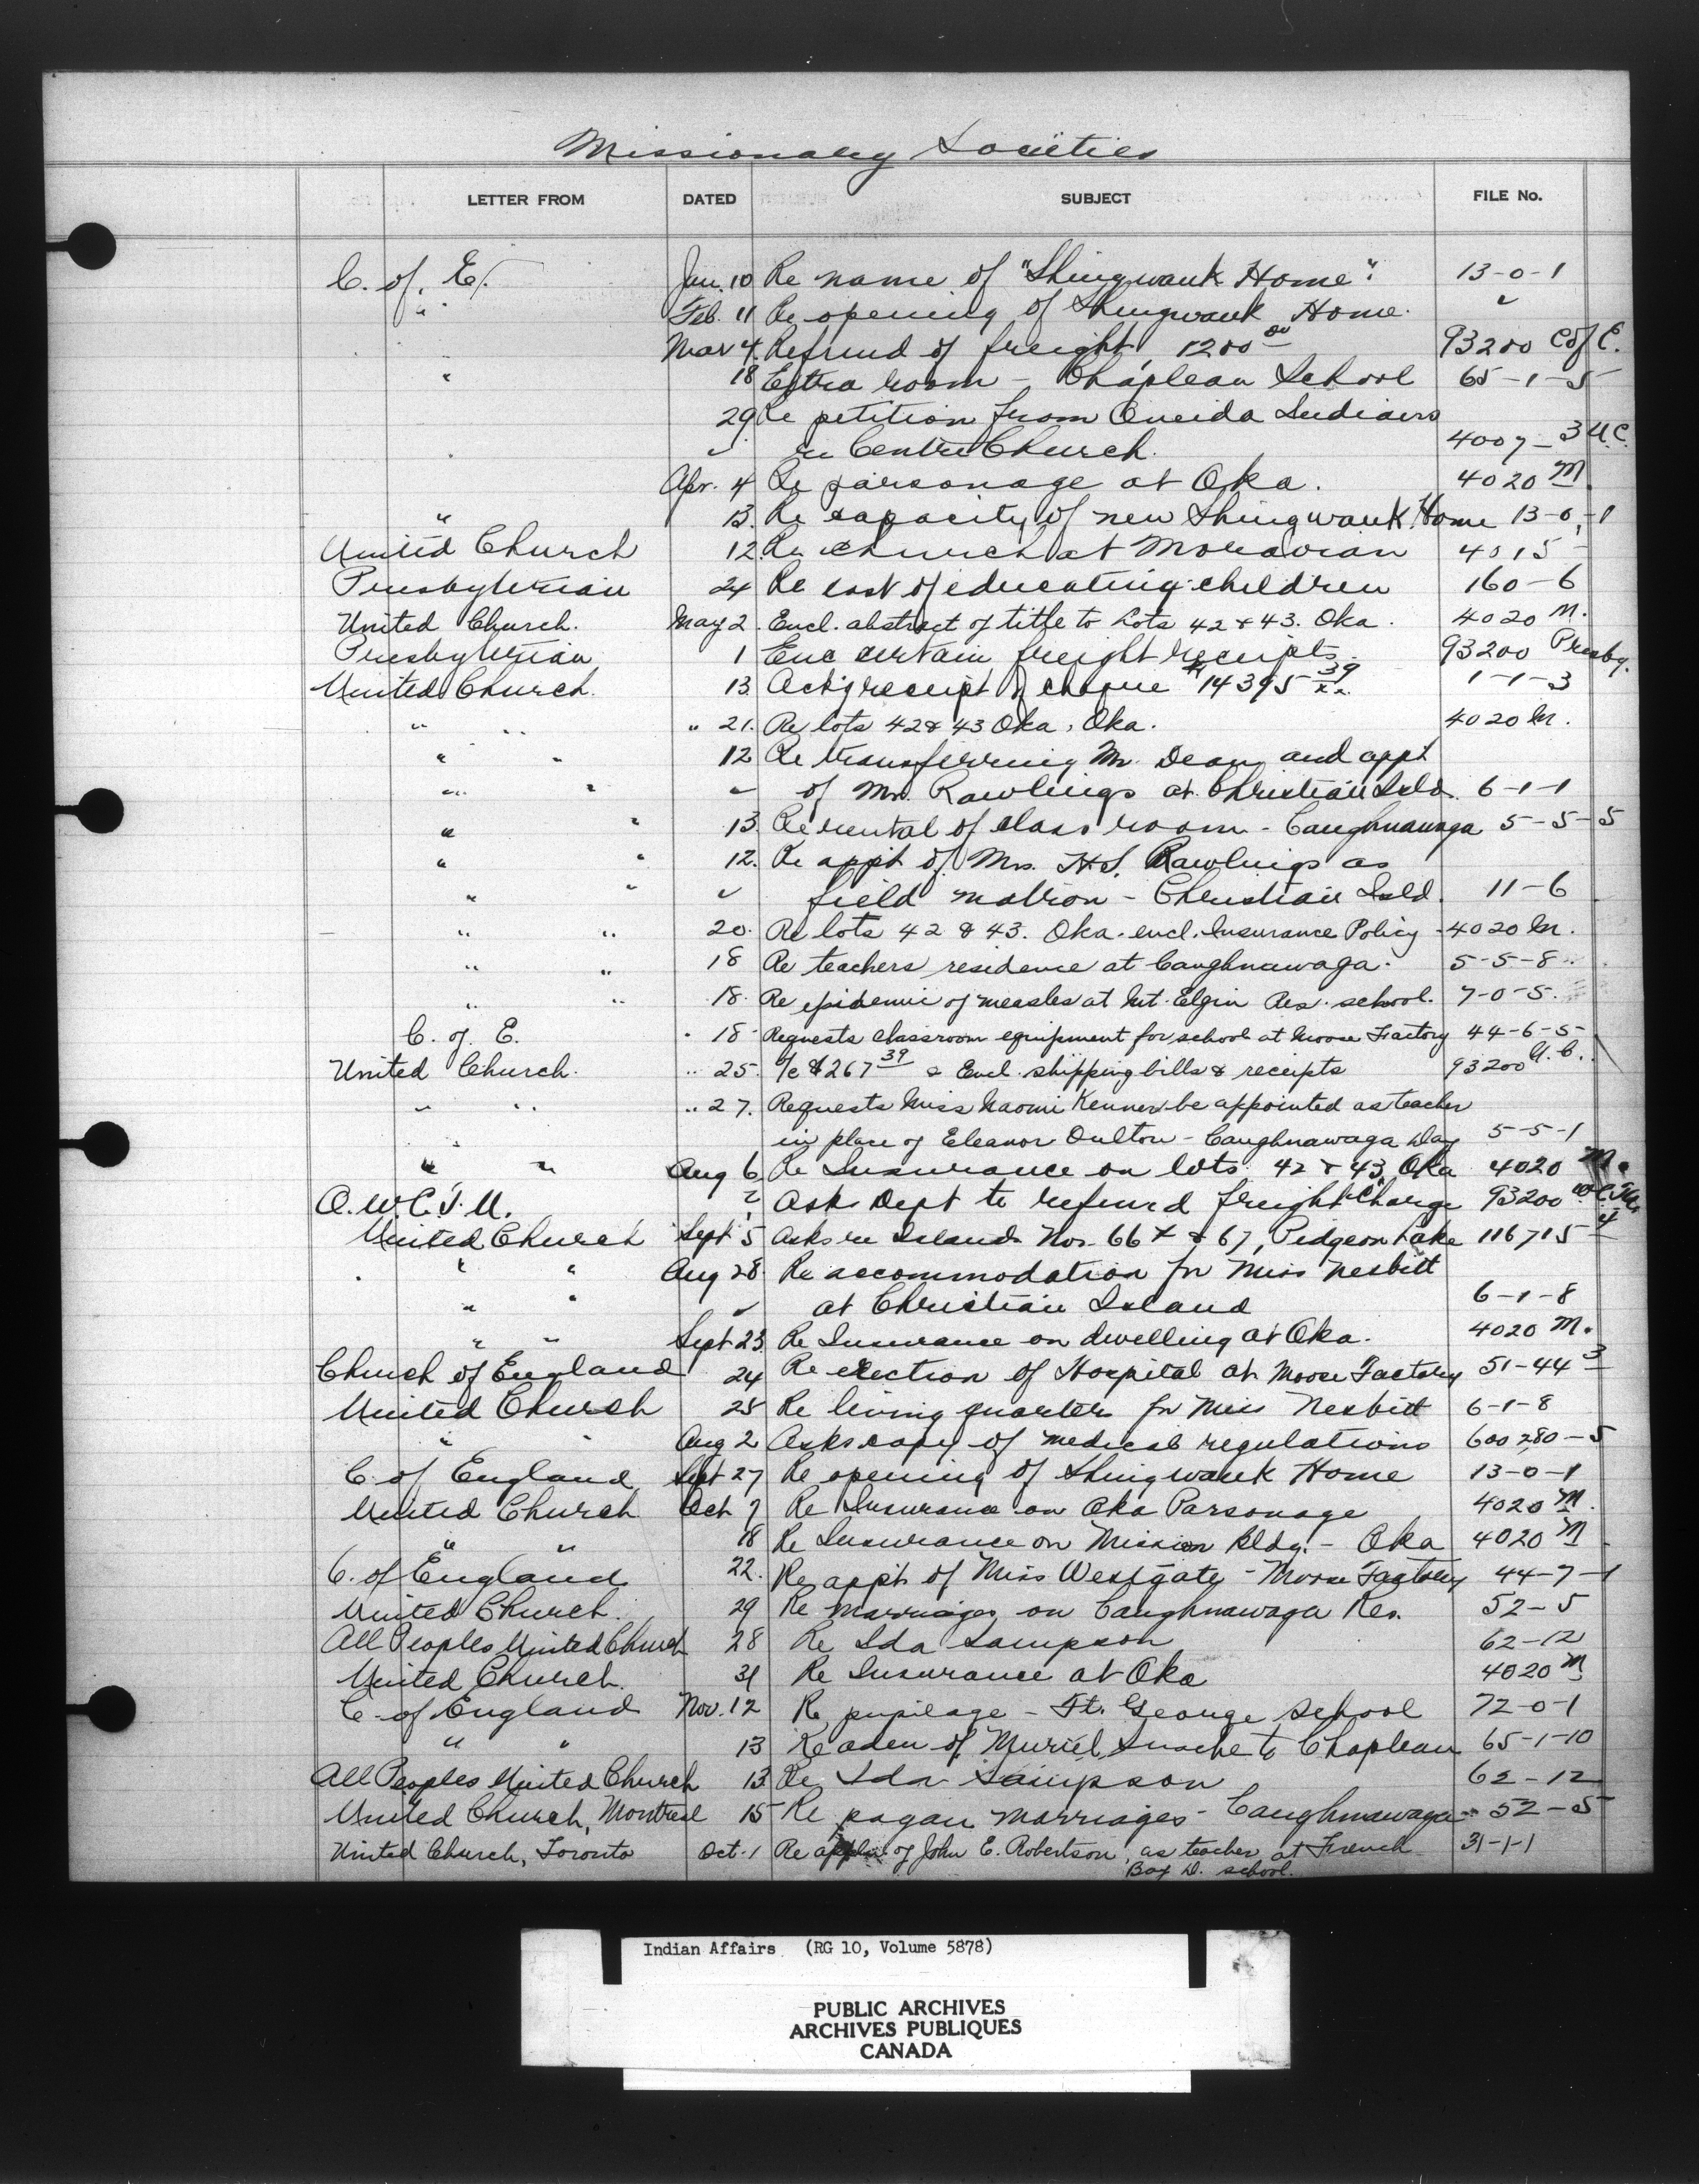 Missionary Societies
LETTER FROM DATED SUBJECT FILE No.
C. of E. Jan. 10 Re name of "Shingwauk Home". 13-0-1
" Feb. 11 Re opening of Shingwauk Home. "
" Mar 4. Refund of freight, 1200 00 93200 C of E.
" 18 Extra room - Chapleau School 65-1-5
29 Re petition from Oneida Indians
" " re Centre Church. 4007-3 U.C.
Apr. 4 Re parsonage at Oka. 4020 M.
" 13. Re capacity of new Shingwauk Home 13-0-1
United Church 12. Re church at Moravian 4015
Presbyterian 24 Re cost of educating children 160-6
United Church. May 2. Encl. abstract of title to Lots 42 & 43. Oka. 4020 M.
Presbyterian 1 Enc certain freight receipts. 93200 Presby.
United Church. 13 Ack'g receipt of cheque $14395 39/xx 1-1-3
" " " 21. Re lots 42 & 43 Oka, Oka. 4020 M.
" " 12 Re transferring Mr. Dean and appt
" " " of Mr. Rawlings at Christian Isld. 6-1-1
" " 13. Re rental of class room - Caughnawaga 5-5-5
" " 12. Re appt of Mrs. H.S. Rawlings as
" " " field matron - Christian Isld. 11-6
" " 20. Re lots 42 & 43. Oka. encl. Insurance Policy - 4020 M.
" " 18 Re teachers residence at Caughnawaga. 5-5-8.
" " 18. Re epidemic of measles at Mt. Elgin Res. school. 7-0-5.
C. of E. " 18 Requests classroom equipment for school at Moose Factory 44-6-5
United Church. " 25. /c $267 39 & Encl. shipping bills & receipts 93200 U.C.
" " " 27. Requests Miss Naomi Kenner be appointed as teacher
" in place of Eleanor Oulton - Caughnawaga Day 5-5-1
" " Aug 6 Re Insurance on lots 42 & 43, Oka 4020 M.
O.W.C.T.U. " Asks Dept to refund freight charge 93200 W.C.T.U.
United Church Sept 5 Asks re Islands Nos. 66 & 67, Pidgeon Lake 116715-4
" " Aug 28. Re accommodation for Miss Nesbitt
" " " at Christian Island 6-1-8
" " Sept 23. Re Insurance on dwelling at Oka. 4020 M.
Church of England 24 Re erection of Hospital at Moose Factory 51-44 3
United Church 25 Re living quarters for Miss Nesbitt 6-1-8
" " Aug 2 Asks copy of medical regulations 600280-5
C. of England Sept 27 Re opening of Shingwauk Home 13-0-1
United Church Oct 7 Re Insurance on Oka Parsonage 4020 M.
" " 18 Re Insurance on Mission bldg. - Oka 4020 M
C. of England 22. Re appt of Miss Westgate - Moose Factory 44-7-1
United Church. 29 Re marriages on Caughnawaga Res. 52-5
All Peoples United Church 28 Re Ida Sampson 62-12
United Church. 31 Re Insurance at Oka 4020 M
C. of England Nov. 12 Re pupilage - Ft. George School 72-0-1
" " 13 Re adm of Muriel to Chapleau 65-1-10
All Peoples United Church 13 Re Ida Sampson 62-12
United Church, Montreal 15 Re pagan marriages - Caughnawaga - 52-5
United Church, Toronto Oct. 1 Re of John E. Robertson, as teacher at French 31-1-1
Bay D. school.
Indian Affairs (RG 10, Volume 5878)
PUBLIC ARCHIVES
ARCHIVES PUBLIQUES
CANADA